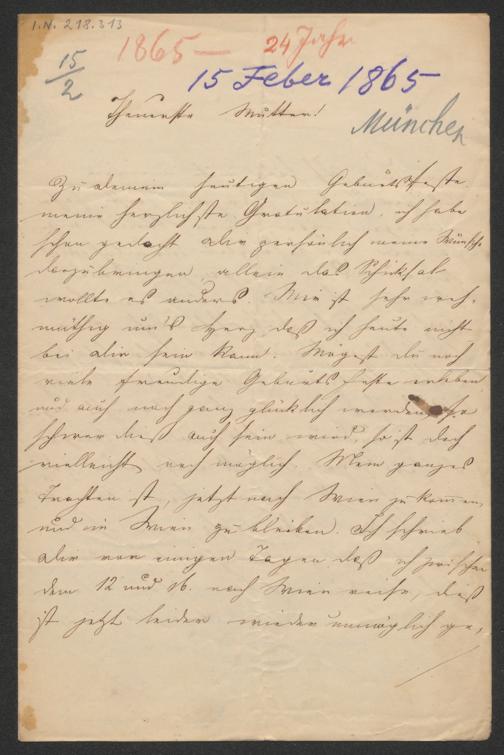 I.N. 218.313
1865 — 24 Jahr
15/2
15 Feber 1865
München
Theuerste Mutter!
Zu deinem heutigen Geburtsfeste
meine herzlichste Gratulation, ich habe
schon gedacht dir persönlich meine Wünsche
darzubringen, allein das Schicksal
wollte es anders. Mir ist sehr weh-
müthig um's Herz daß ich heute nicht
bei dir sein kann. Mögest du noch
viele freudige Geburtsfeste erleben
und auch noch ganz glücklich werden,
schwer dieß auch sein wird, so ist doch
vielleicht noch möglich. Mein ganzes
Trachten ist, jetzt nach Wien zu kommen,
und in Wien zu bleiben. Ich schrieb
dir vor einigen Tagen daß ich zwischen
dem 12 und 16. nach Wien reise, dieß
ist jetzt leider wieder unmöglich ge,